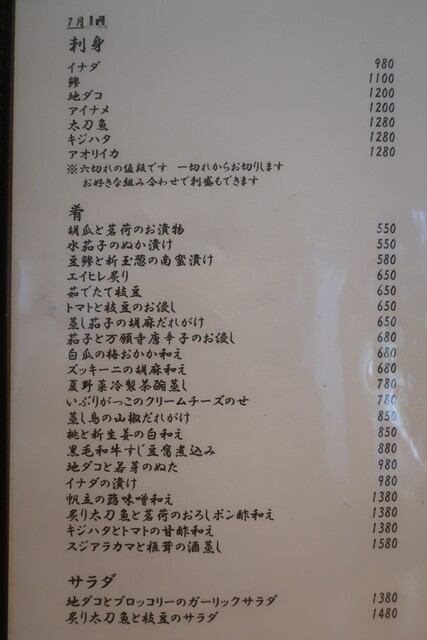 7月
刺身
イナダ 980
鯵 1100
地ダコ 1200
アイナメ 1200
太刀魚 1280
キジハタ 1280
アオリイカ 1280
※六切れの値段です 一切れからお切りします
お好きな組み合わせで刺盛もできます
肴
胡瓜と茗荷のお漬物 550
水茄子のぬか漬け 550
豆鯵と新玉葱の南蛮漬け 580
エイヒレ炙り 650
茹でたて枝豆 650
トマトと枝豆のお浸し 650
蒸し茄子の胡麻だれがけ 650
茄子と万願寺唐辛子のお浸し 680
白瓜の梅おかか和え 680
ズッキーニの胡麻和え 680
夏野菜冷製茶碗蒸し 780
いぶりがっこのクリームチーズのせ 780
蒸し鳥の山椒だれがけ 850
桃と新生姜の白和え 850
黒毛和牛すじ豆腐煮込み 880
地ダコと若芽のぬた 980
イナダの漬け 980
帆立の蕗味噌和え 1380
炙り太刀魚と茗荷のおろしポン酢和え 1380
キジハタとトマトの甘酢和え 1380
スジアラカマと椎茸の酒蒸し 1580
サラダ
地ダコとブロッコリーのガーリックサラダ 1380
炙り太刀魚と枝豆のサラダ 1480